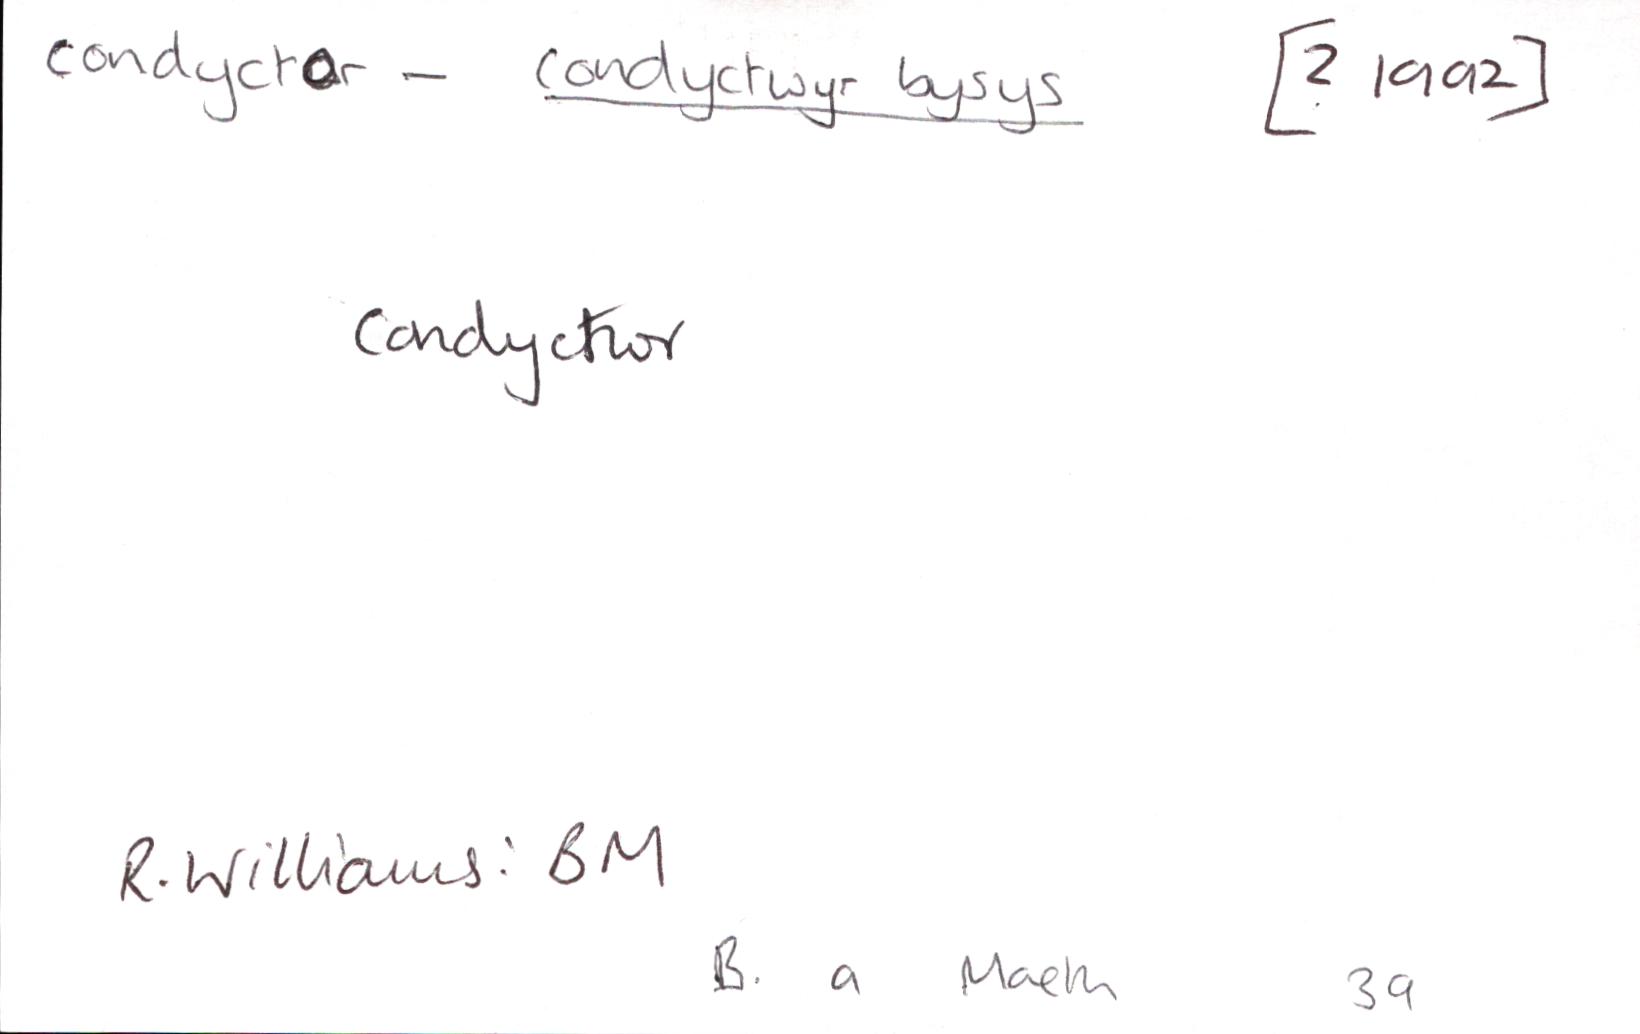 condyctor – condyctwyr bysys [? 1992]
Condyctwr
R. Williams: BM
B. a Maeth 39